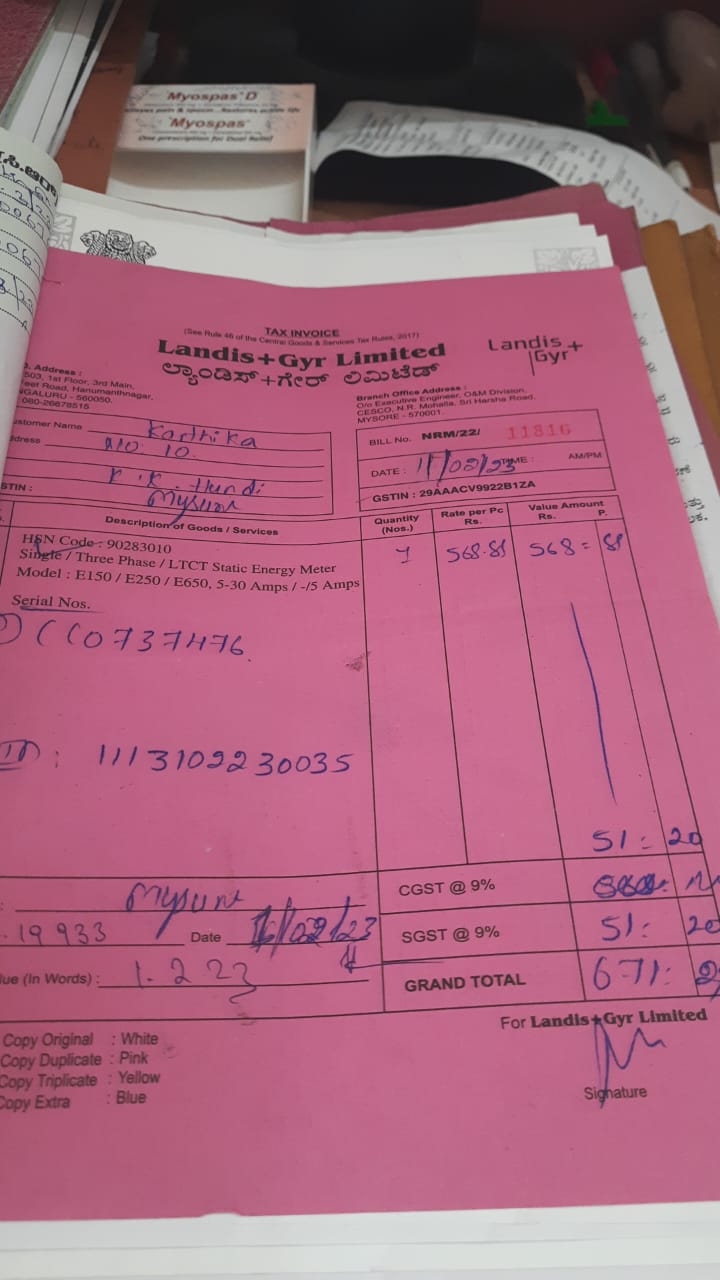 Myospas D
Myospas
One prescription for Dual Relief
TAX INVOICE
(See Rule 46 of the Central Goods & Services Tax Rules, 2017)
Landis+Gyr Limited
ಲ್ಯಾಂಡಿಸ್+ಗೇರ್ ಲಿಮಿಟೆಡ್
Landis+
Gyr+
. Address :
503, 1st Floor, 3rd Main,
eet Road, Hanumanthnagar,
NGALURU - 560050.
080-26678515
Branch Office Address :
O/o Executive Engineer, O&M Division,
CESCO, N.R. Mohalla, Sri Harsha Road,
MYSORE - 570001.
ustomer Name Karthika
ddress No. 10.
K.K. Hundi
STIN : Mysure
BILL No. NRM/22/ 11816
DATE : 11/02/23 TIME : AM/PM
GSTIN : 29AAACV9922B1ZA
Description of Goods / Services
Quantity (Nos.)
Rate per Pc Rs.
Value Amount Rs. P.
HSN Code : 90283010
Single / Three Phase / LTCT Static Energy Meter
Model : E150 / E250 / E650, 5-30 Amps / -/5 Amps
1 568.81 568 = 81
Serial Nos.
CC0737476
: 1113102230035
51 = 20
Mysure
CGST @ 9%
19933 Date /02/23
SGST @ 9% 51: 20
lue (In Words) : 1.2.23
GRAND TOTAL 671:
Copy Original : White
Copy Duplicate : Pink
Copy Triplicate : Yellow
Copy Extra : Blue
For Landis+Gyr Limited
Signature